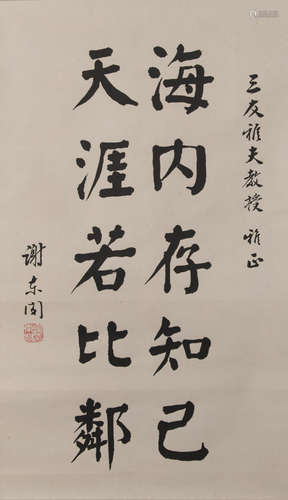 三友雅夫教授 雅正
海内存知己
天涯若比鄰
谢东闵